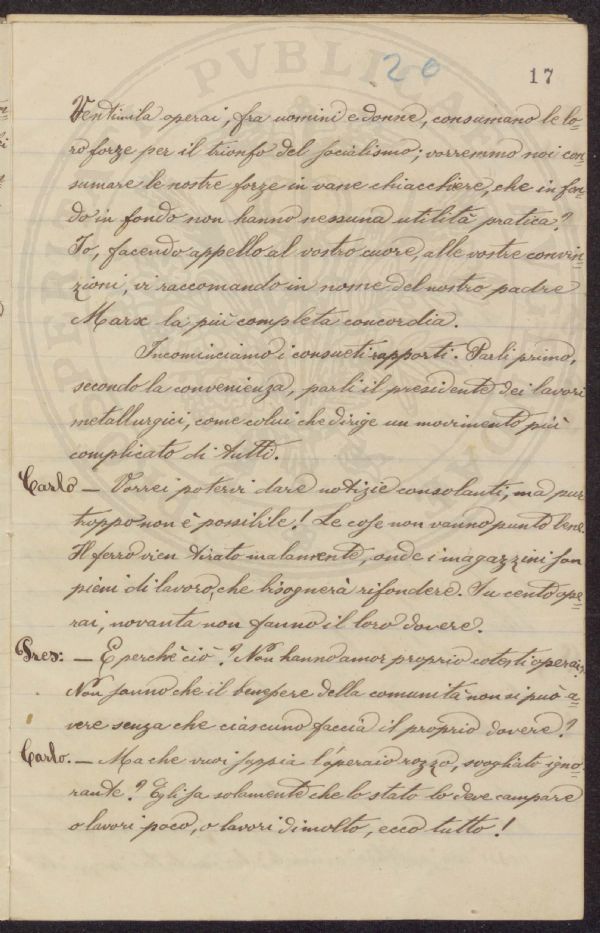 20
17
Ventimila operai, fra uomini e donne, consumano le lo=
ro forze per il trionfo del socialismo; vorremmo noi con=
sumare le nostre forze in vane chiacchiere, che in fon=
do in fondo non hanno nessuna utilità pratica?
Io, facendo appello al vostro cuore, alle vostre convin=
zioni, vi raccomando in nome del nostro padre
Marx la più completa concordia.
Incominciamo i consueti rapporti. Parli primo,
secondo la convenienza, parli il presidente dei lavori
metallurgici, come colui che dirige un movimento più
complicato di tutti.
Carlo — Vorrei potervi dare notizie consolanti, ma pur
troppo non è possibile! Le cose non vanno punto bene.
Il ferro vien tirato malamente, onde i magazzini son
pieni di lavoro, che bisognerà rifondere. Su cento ope=
rai, novanta non fanno il loro dovere.
Pres: — E perchè ciò? Non hanno amor proprio cotesti operai,
Non sanno che il benessere della comunità non si può a=
vere senza che ciascuno faccia il proprio dovere?
Carlo. — Ma che vuoi sappia l'operaio rozzo, svogliato igno=
rante? Egli sa solamente che lo stato lo deve campare
o lavori poco, o lavori dimolto, ecco tutto!